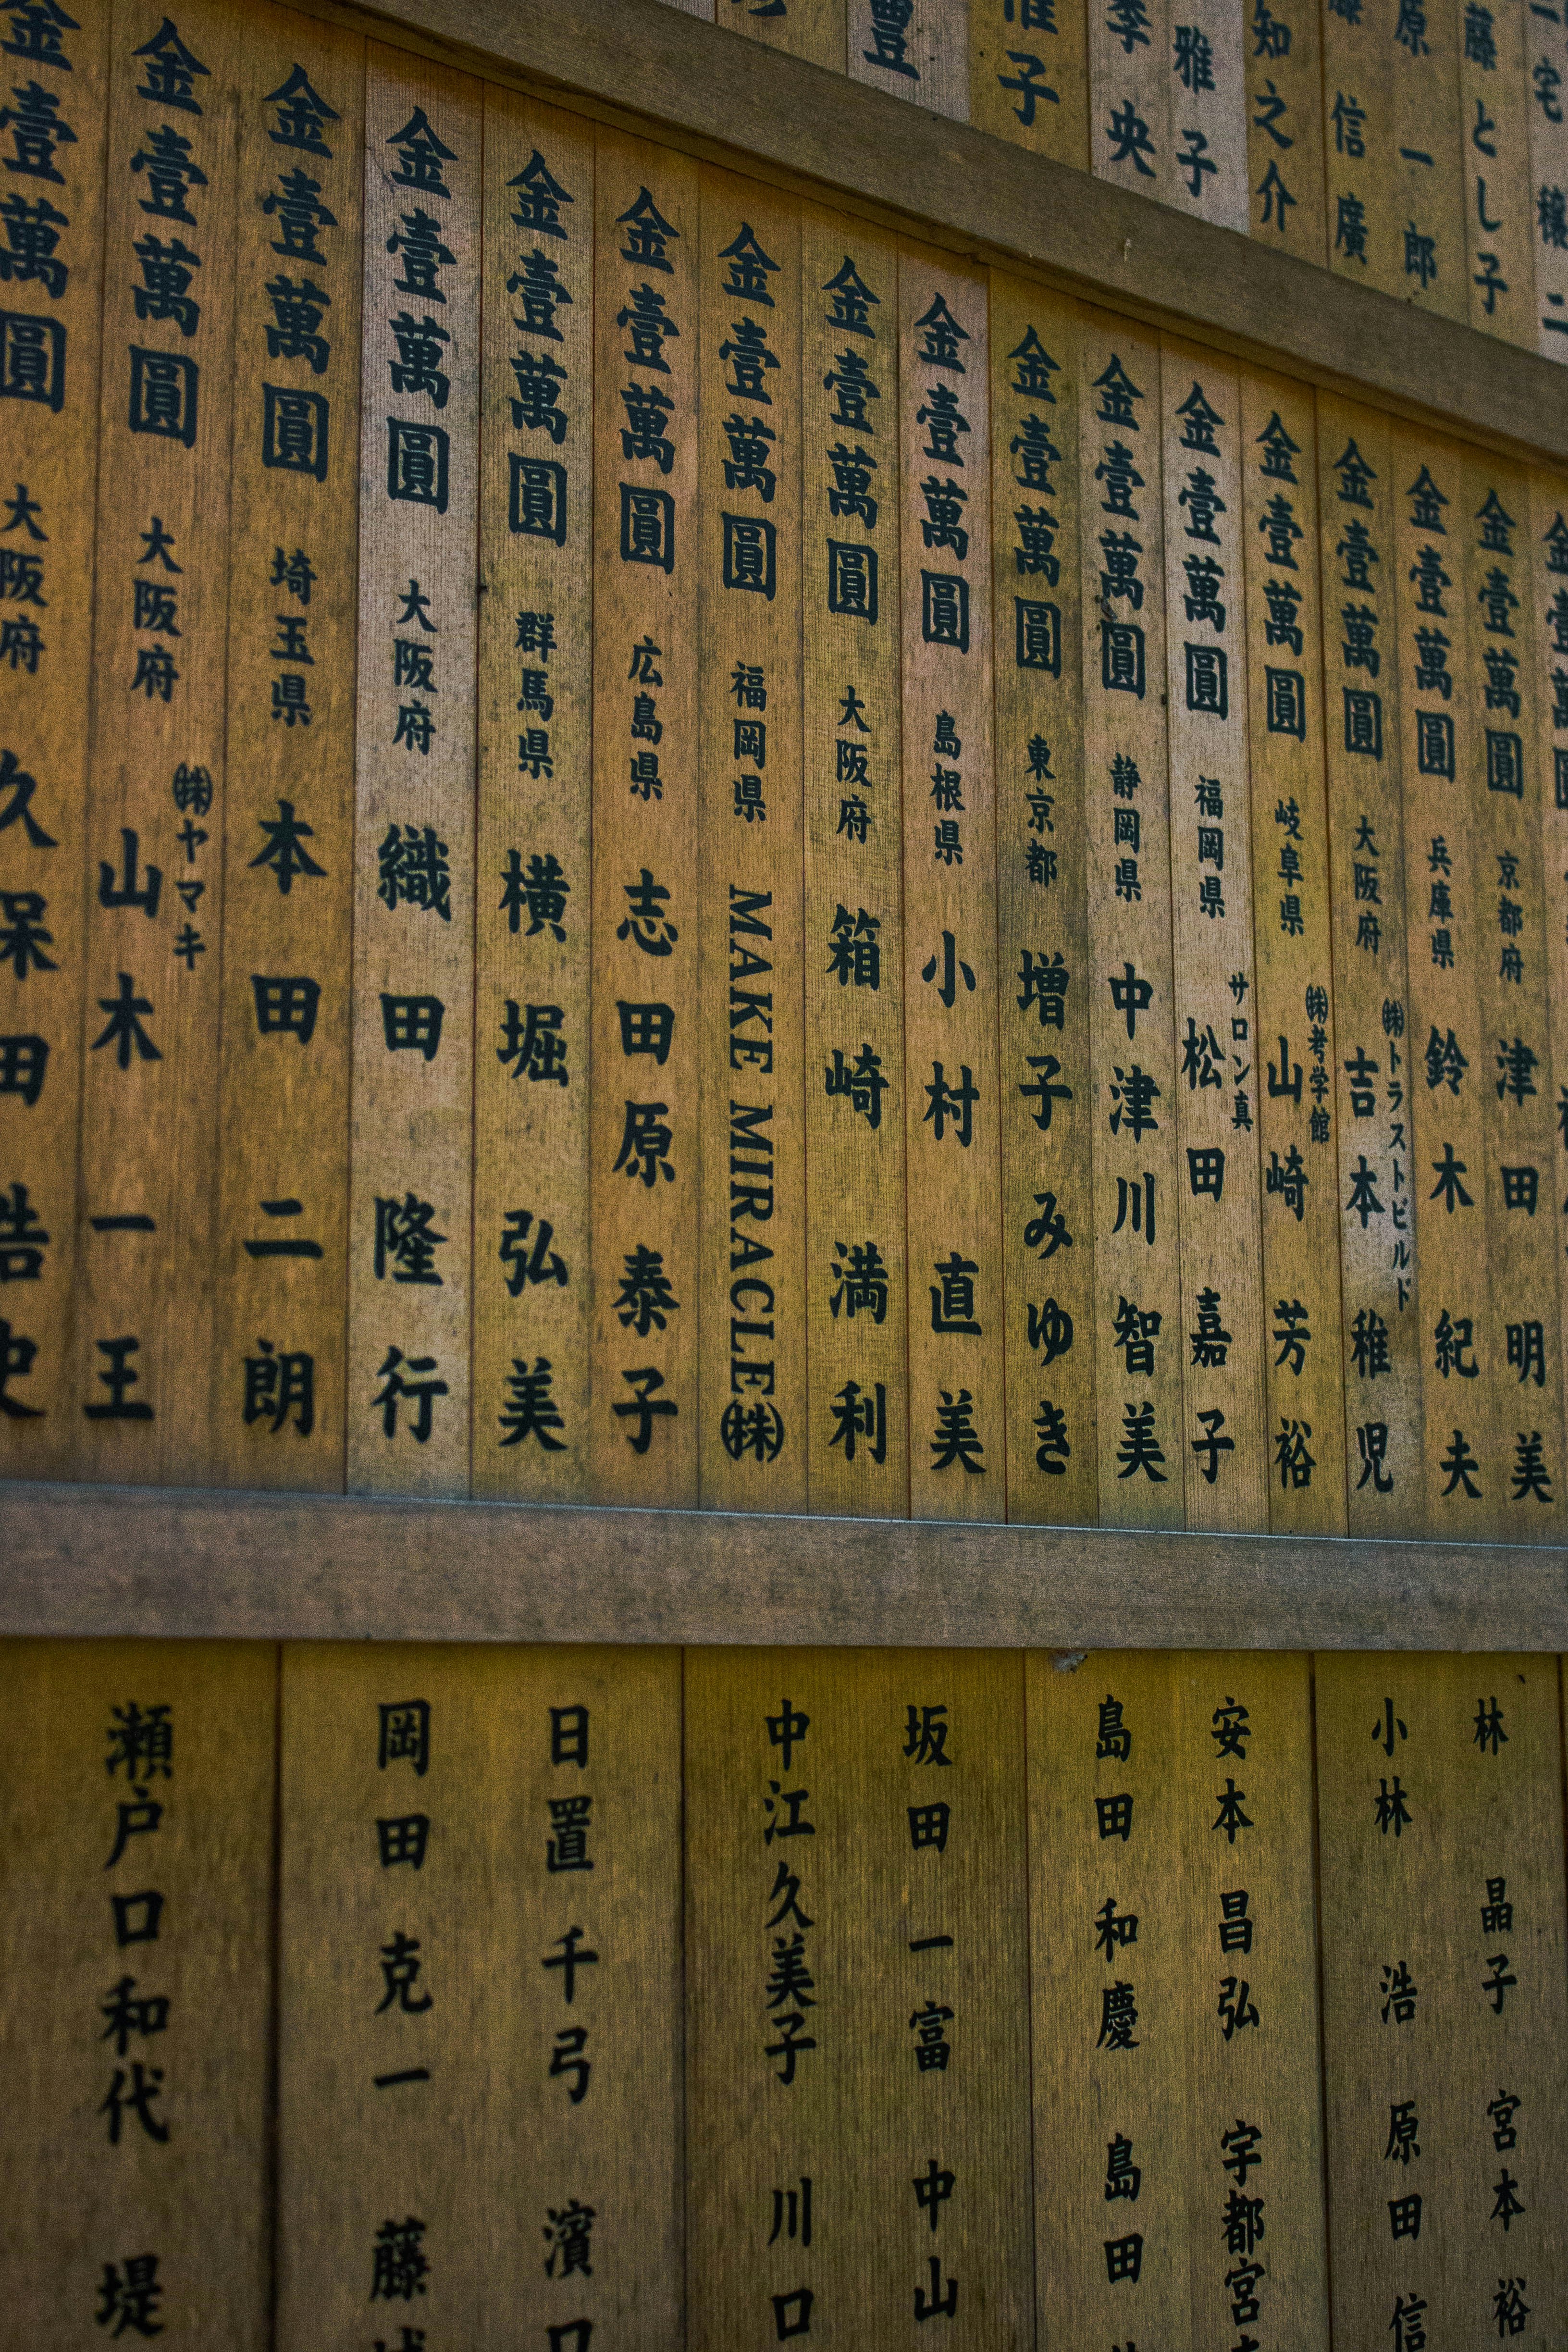 藤とし子
原一郎
信廣
知之介
雅子
央
子
豊
金壹萬圓 京都府 津田明美
金壹萬圓 兵庫県 鈴木紀夫
金壹萬圓 大阪府 ㈱トラストビルド 吉本稚児
金壹萬圓 岐阜県 ㈱考学館 山崎芳裕
金壹萬圓 福岡県 サロン真 松田嘉子
金壹萬圓 静岡県 中津川智美
金壹萬圓 東京都 増子みゆき
金壹萬圓 島根県 小村直美
金壹萬圓 大阪府 箱崎満利
金壹萬圓 福岡県 MAKE MIRACLE㈱
金壹萬圓 広島県 志田原泰子
金壹萬圓 群馬県 横堀弘美
金壹萬圓 大阪府 織田隆行
金壹萬圓 埼玉県 本田二朗
金壹萬圓 大阪府 ㈱ヤマキ 山木一王
金壹萬圓 大阪府 久保田浩史
林 晶子 宮本 裕
小林 浩 原田 信
安本 昌弘 宇都宮
島田 和慶 島田
坂田 一富 中山
中江久美子 川口
日置 千弓 濱口
岡田 克一 藤
瀬戸口和代 堤